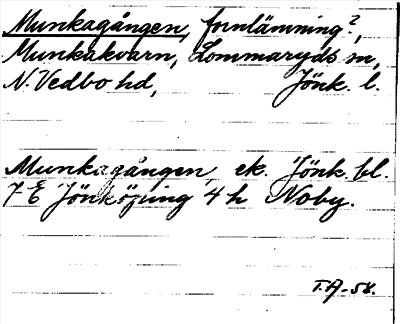 Munkagången, fornlämning?,
Munkakvarn, Lommaryds sn,
N. Vedbo hd, Jönk. l.
Munkagången, ek. Jönk. bl.
7 E Jönköping 4 h Noby.
T.A-58.